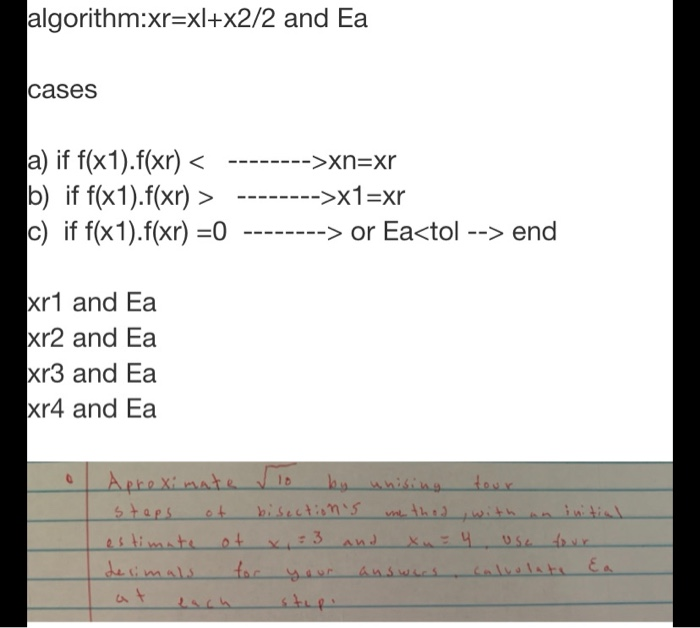 algorithm:xr=xl+x2/2 and Ea
cases
a) if f(x1).f(xr) < -------->xn=xr
b) if f(x1).f(xr) > -------->x1=xr
c) if f(x1).f(xr) =0 --------> or Ea<tol --> end
xr1 and Ea
xr2 and Ea
xr3 and Ea
xr4 and Ea
Aproximate √10 by unising four
steps of bisection's method, with an initial
estimate of x₁=3 and xu=4. Use four
decimals for your answers. calculate Ea
at each step.